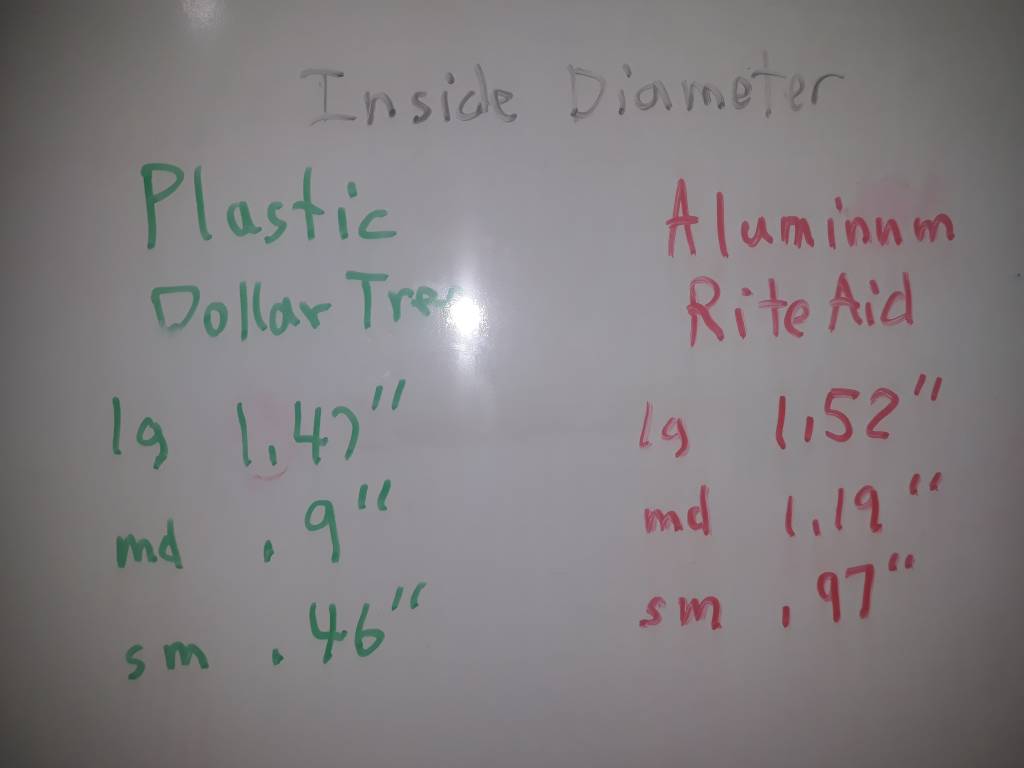 Inside Diameter
Plastic
Dollar Tree
lg 1.47"
md .9"
sm .46"
Aluminum
Rite Aid
lg 1.52"
md 1.19"
sm .97"